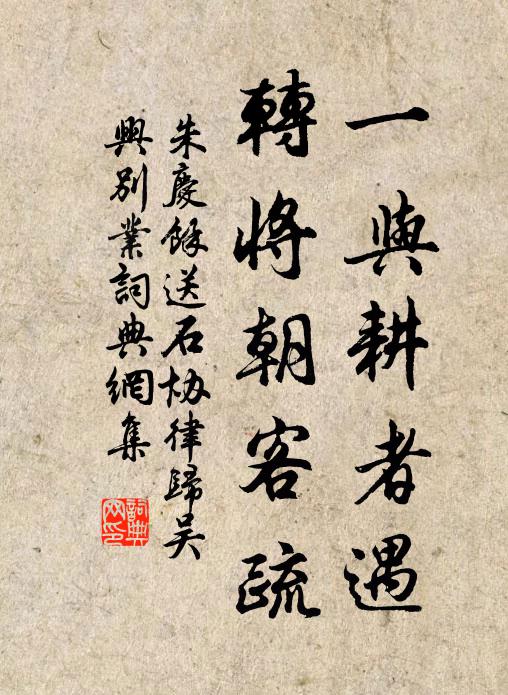 一與耕者遇
轉將朝客疏
朱慶餘送石協律歸吳
興別業詞典網集
詞典
网印